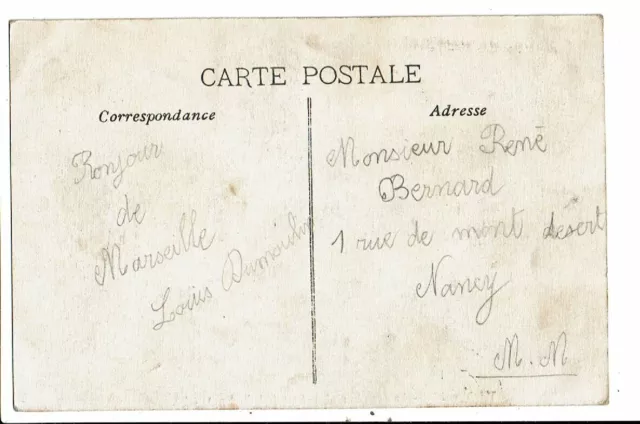 CARTE POSTALE
Correspondance
Bonjour
de
Marseille
Louis Dumoulin
Adresse
Monsieur René
Bernard
1 rue de mont désert
Nancy
M. M